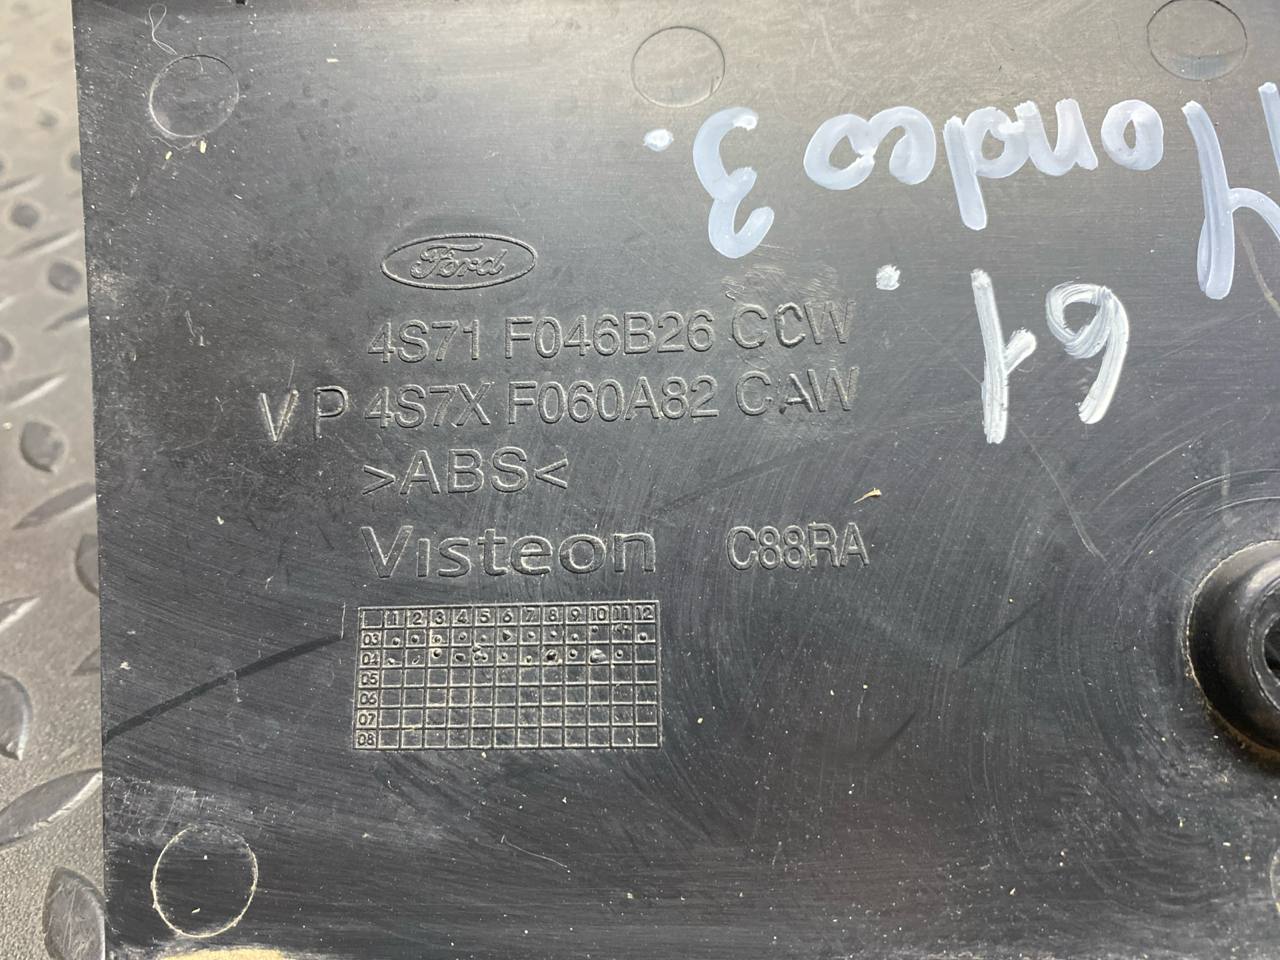 Mondeo 3
61
Ford
4S71 F046B26 CCW
VP 4S7X F060A82 CAW
>ABS<
Visteon C88RA
1 2 3 4 5 6 7 8 9 10 11 12
03
04
05
06
07
08